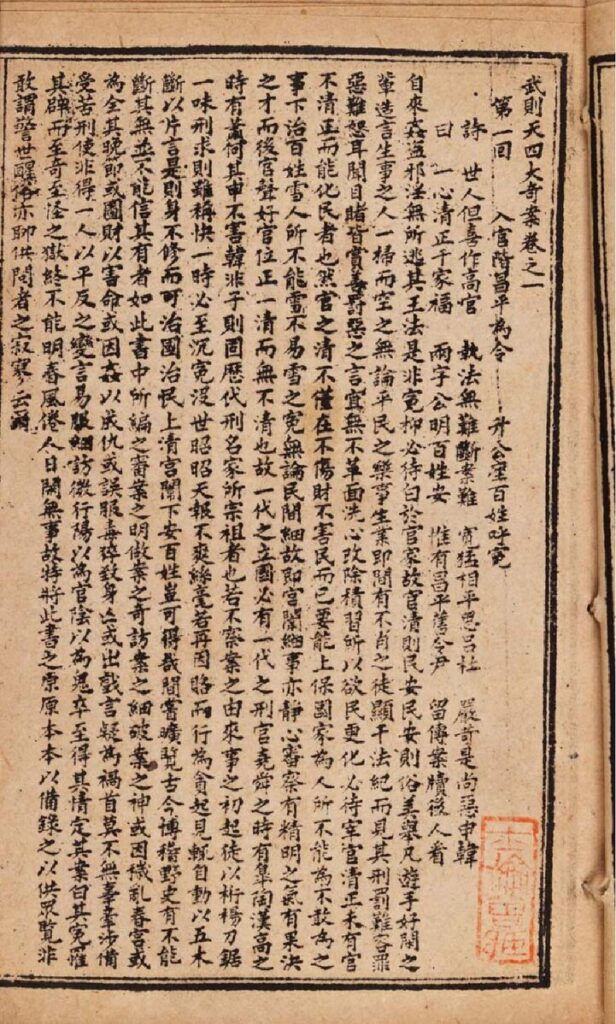 武則天四大奇案卷之一
第一回　入官階昌平為令　升公堂百姓呼冤
詩　世人但喜作高官　執法無難斷案難　寬猛相平思呂杜　嚴苛是尚惡申韓
曰　一心清正千家福　兩字公明百姓安　惟有昌平舊令尹　留傳案牘後人看
自來姦盜邪淫無所逃其王法是非冤抑必待白於官家故官清則民安民安則俗美舉凡遊手好閑之
輩造言生事之人一掃而空之無論平民之樂事生業即間有不肖之徒顯干法紀而見其刑罰難容罪
惡難恕耳聞目睹皆賞善罰惡之言宜無不革面洗心改除積習所以欲民更化必待宰官清正未有官
不清正而能化民者也然官之清不僅在不傷財不害民而已要能上保國家為人所不能為不敢為之
事下治百姓雪人所不能雪不易雪之冤無論民間細故即宮闈細事亦靜心審察有精明之氣有果決
之才而後官聲好官位正一清而無不清也故一代之立國必有一代之刑官堯舜之時有皋陶漢高之
時有蕭何其申不害韓非子則固歷代刑名家所宗祖者也若不察案之由來事之初起徒以桁楊刀鋸
一味刑求則雖稱快一時必至沉冤沒世昭昭天報不爽絲毫若再因賂而行為貪起見輒自動以五木
斷以片言是則身不修而可治國治民上清宮闈下安百姓豈可得哉間嘗曠覽古今博稽野史有不能
斷其無並不能信其有者如此書中所編之審案之明做案之奇訪案之細破案之神或因穢亂春宮或
為全其晚節或圖財以害命或因姦以成仇或誤服毒猝殺身亡或出戲言疑為禍首莫不無辜牽涉備
受苦刑使非得一人以平反之變言易服細訪微行陽以為官陰以為鬼卒至得其情定其案白其冤罹
其辟而至奇至怪之獄終不能明春風倦人日閑無事故特將此書之原原本本以備錄之以供眾覽非
敢謂警世醒俗亦聊供閱者之寂寥云爾